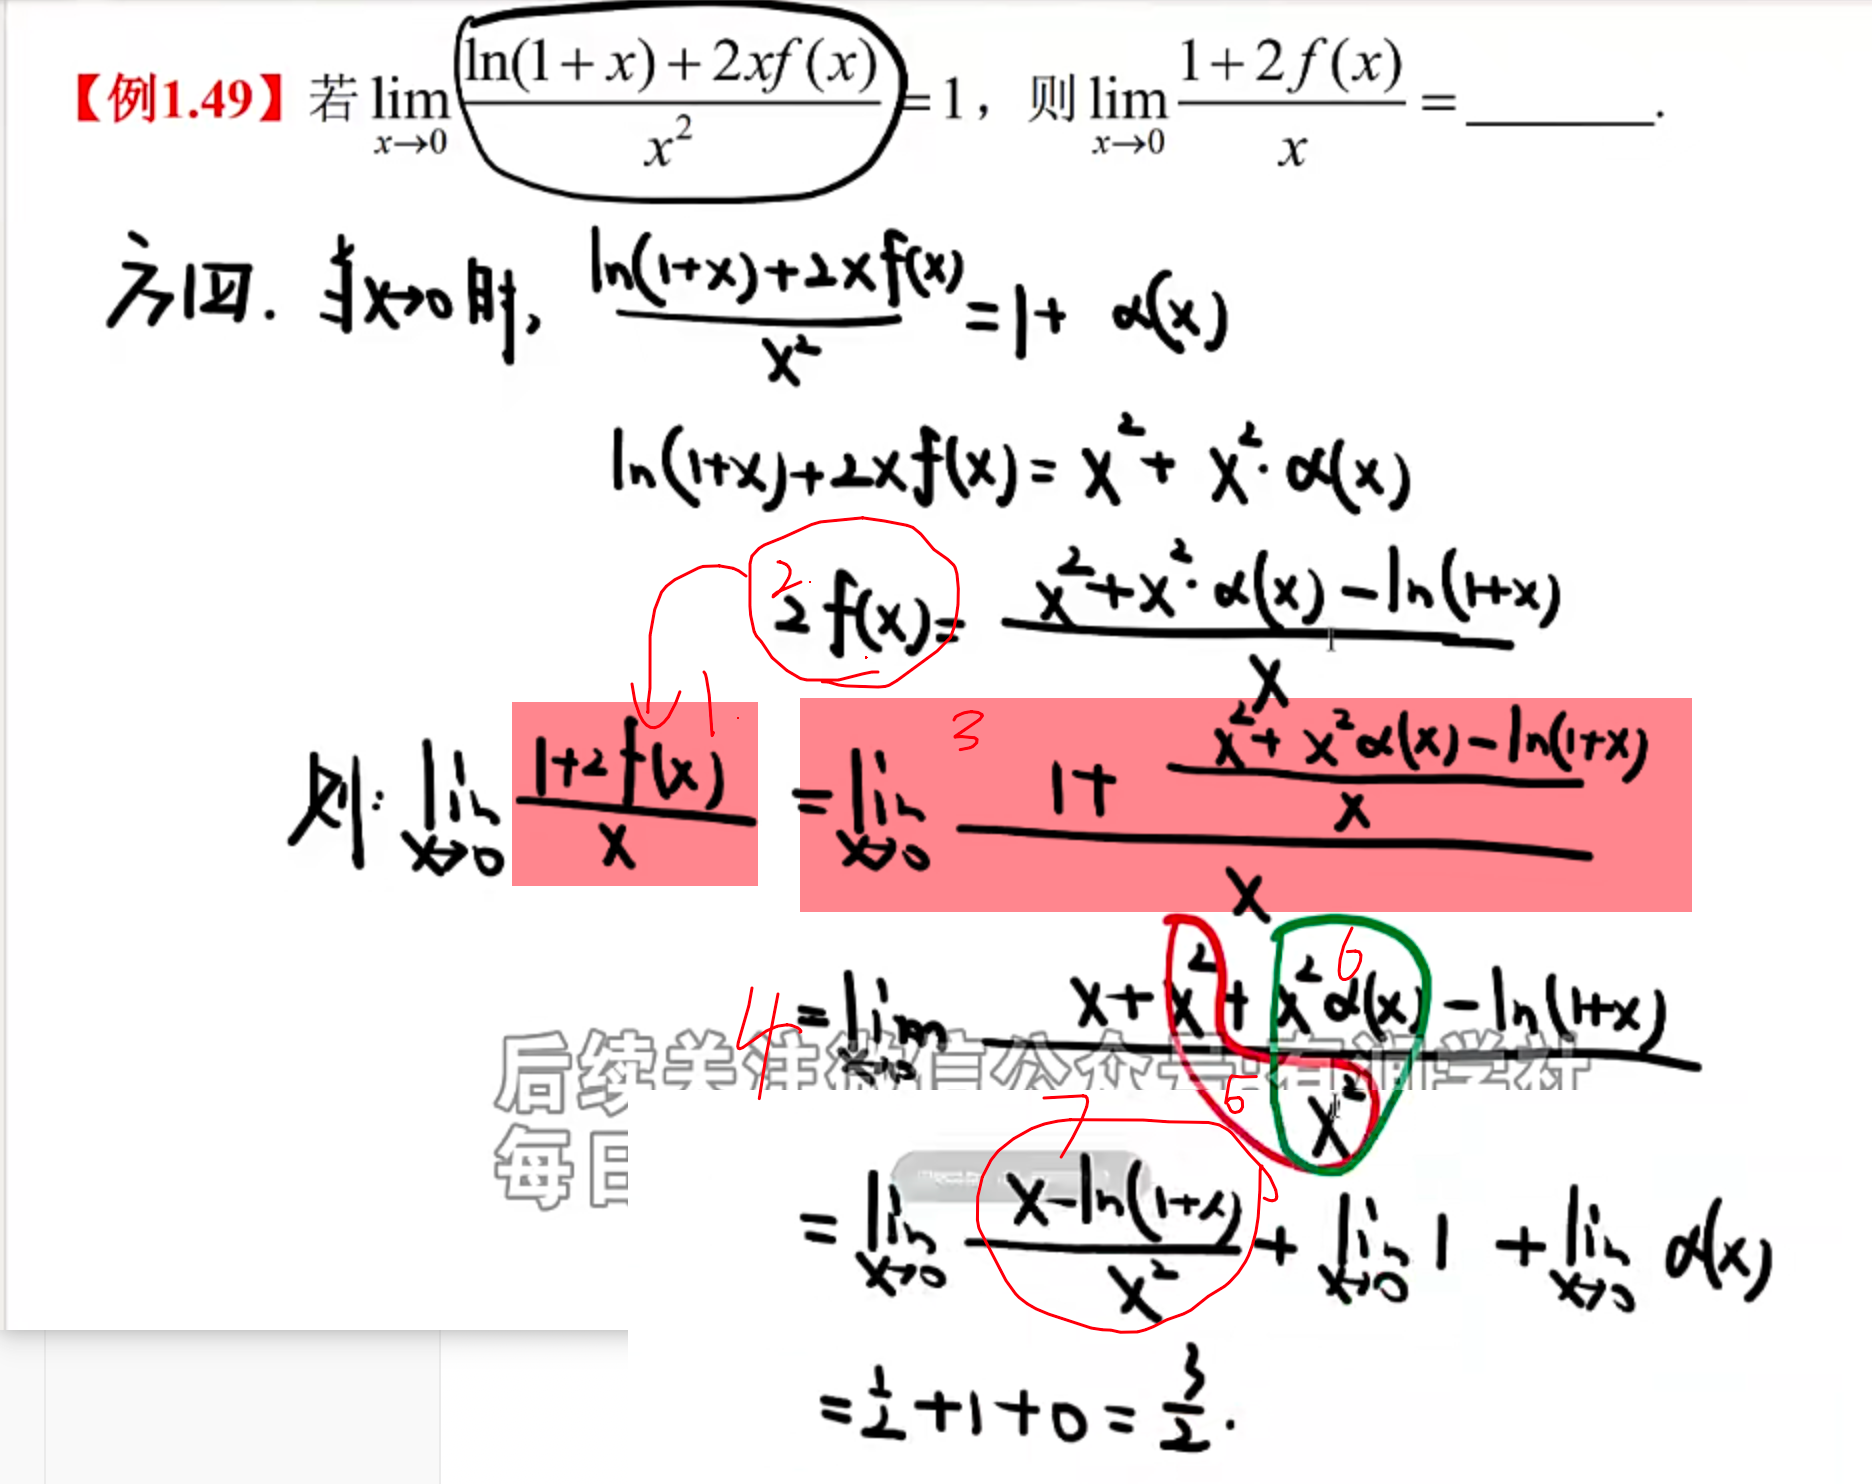 【例1.49】若 lim x→0 (ln(1+x)+2xf(x))/x² =1，则 lim x→0 (1+2f(x))/x = ______.
方四. 当x→0时, (ln(1+x)+2xf(x))/x² = 1+ α(x)
ln(1+x)+2xf(x) = x² + x²·α(x)
2. 2f(x) = (x²+x²·α(x)-ln(1+x))/x
1.
则: lim x→0 (1+2f(x))/x = lim x→0 (1+ (x²+x²α(x)-ln(1+x))/x)/x
3
4 = lim x→0 (x+x²+x²α(x)-ln(1+x))/x²
5
6
后续关注微信公众号:有润学社
每日
7
= lim x→0 (x-ln(1+x))/x² + lim x→0 1 + lim x→0 α(x)
= 1/2 +1+0 = 3/2.